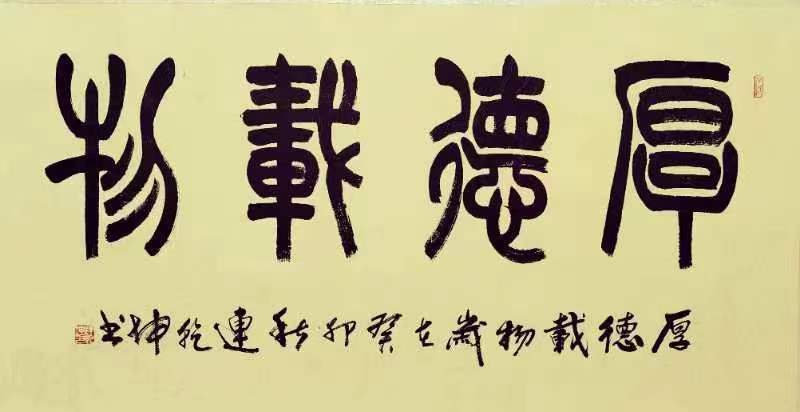 厚德載物
厚德載物歲在癸卯秋連乾坤書